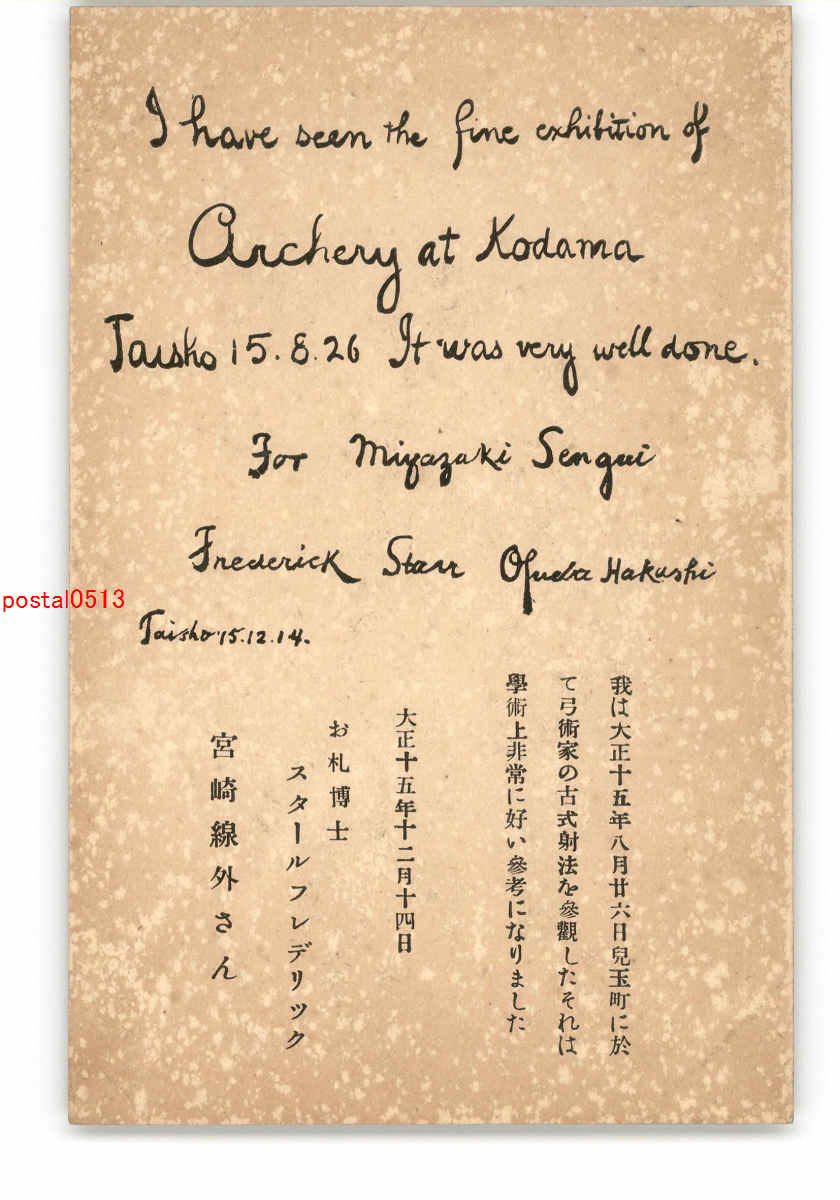 I have seen the fine exhibition of
Archery at Kodama
Taisho 15.8.26 It was very well done.
For Miyazaki Sengui
Frederick Starr Ofuda Hakushi
Taisho 15.12.14.
postal0513
我は大正十五年八月廿六日兒玉町に於
て弓術家の古式射法を參觀したそれは
學術上非常に好い參考になりました
大正十五年十二月十四日
お札博士
スタールフレデリック
宮崎線外さん